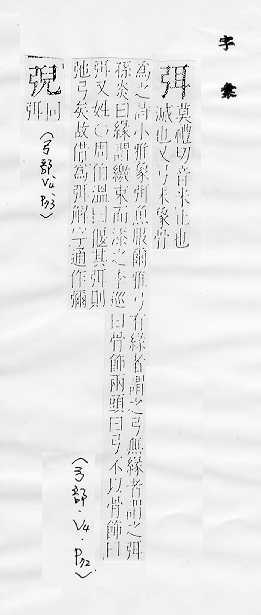 字彙
弭 莫禮切音米止也
滅也又弓末彆骨
爲之詩小雅象弭魚服爾雅弓有緣者謂之弓無緣者謂之弭
孫炎曰緣謂繳束而漆之李巡曰骨飾兩頭曰弓不以骨飾曰
弭又姓○周伯溫曰偃其弭則
弛弓矣故借爲弭解字通作彌
(弓部·V4·P32)
𢏺 同
弭
(弓部V4·P33)